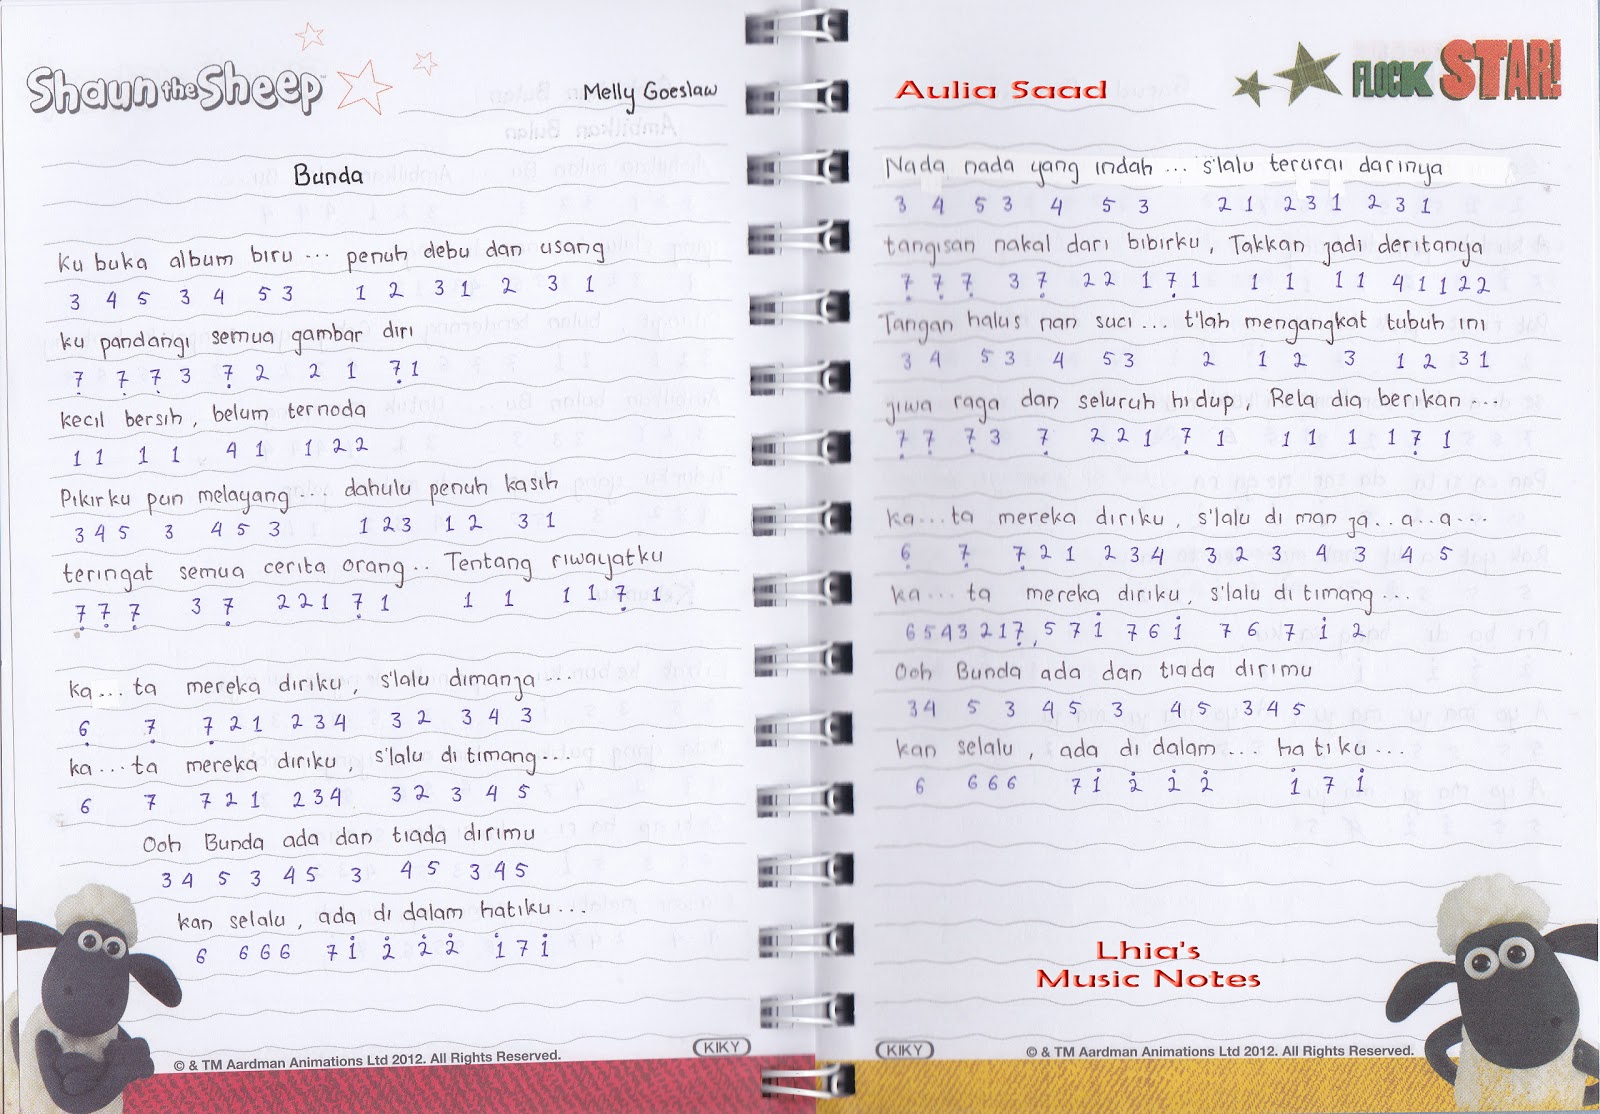 Shaun the Sheep
Melly Goeslaw
Bunda
Ku buka album biru ... penuh debu dan usang
3 4 5 3 4 5 3 1 2 3 1 2 3 1
ku pandangi semua gambar diri
7̣ 7̣ 7̣ 3 7̣ 2 2 1 7̣ 1
kecil bersih, belum ternoda
1 1 1 1 4 1 1 2 2
Pikirku pun melayang ... dahulu penuh kasih
3 4 5 3 4 5 3 1 2 3 1 2 3 1
teringat semua cerita orang.. Tentang riwayatku
7̣ 7̣ 7̣ 3 7̣ 2 2 1 7̣ 1 1 1 1 1 7̣ 1
ka...ta mereka diriku, s'lalu dimanja...
6̣ 7̣ 7̣ 2 1 2 3 4 3 2 3 4 3
ka...ta mereka diriku, s'lalu di timang...
6 7 7 2 1 2 3 4 3 2 3 4 5
Ooh Bunda ada dan tiada dirimu
3 4 5 3 4 5 3 4 5 3 4 5
kan selalu, ada di dalam hatiku...
6 6 6 6 7 1̇ 2̇ 2̇ 2̇ 1̇ 7 1̇
© & TM Aardman Animations Ltd 2012. All Rights Reserved.
KIKY
Aulia Saad
FLOCK STAR!
Nada nada yang indah ... s'lalu terurai darinya
3 4 5 3 4 5 3 2 1 2 3 1 2 3 1
tangisan nakal dari bibirku, Takkan jadi deritanya
7̣ 7̣ 7̣ 3 7̣ 2 2 1 7̣ 1 1 1 1 1 4 1 1 2 2
Tangan halus nan suci... t'lah mengangkat tubuh ini
3 4 5 3 4 5 3 2 1 2 3 1 2 3 1
jiwa raga dan seluruh hidup, Rela dia berikan...
7̣ 7̣ 7̣ 3 7̣ 2 2 1 7̣ 1 1 1 1 1 7̣ 1
ka...ta mereka diriku, s'lalu di man ja..a..a...
6̣ 7̣ 7̣ 2 1 2 3 4 3 2 3 4 3 4 5
ka...ta mereka diriku, s'lalu di timang...
6 5 4 3 2 1 7̣, 5 7 1̇ 7 6 1̇ 7 6 7 1̇ 2
Ooh Bunda ada dan tiada dirimu
3 4 5 3 4 5 3 4 5 3 4 5
kan selalu, ada di dalam... hatiku...
6 6 6 6 7 1̇ 2̇ 2̇ 2̇ 1̇ 7 1̇
Lhia's
Music Notes
KIKY
© & TM Aardman Animations Ltd 2012. All Rights Reserved.